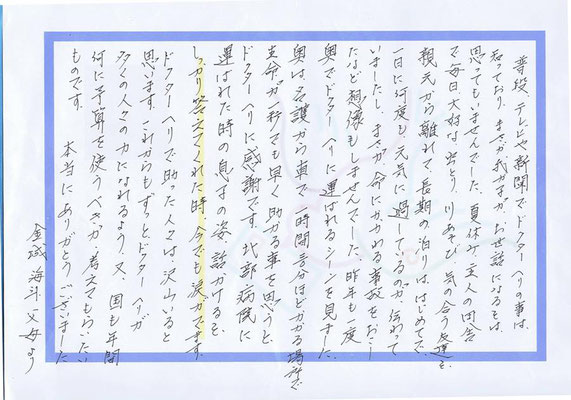 普段、テレビや新聞でドクターヘリの事は、
知っており、まさか我が子が、お世話になるとは
思ってもいませんでした。夏休み、主人の田舎
で毎日大好な虫とり、川あそび、気の合う友達と、
親元から離れて、長期の泊りは、はじめてで、
一日に何度も元気に過しているのが、伝わって
いましたし、まさか、命にかかわる事故をおこし
たなど想像もしませんでした。昨年も一度
奥でドクターヘリに運ばれるシーンを見ました。
奥は、名護から車で、時間 分ほどかかる場所で
生命が一秒でも早く助かる事を思うと、
ドクターヘリに感謝です。北部病院に
運ばれた時の息子の姿、話かけると、
しっかり答えてくれた時、今でも涙がでます。
ドクターヘリで助った人々は、沢山いると
思います。これからもずっとドクターヘリが
多くの人々の力になれるよう、又、国も年間
何に予算を使うべきか、考えてもらいたい
ものです。
本当にありがとうございました
金城 海斗 父母より